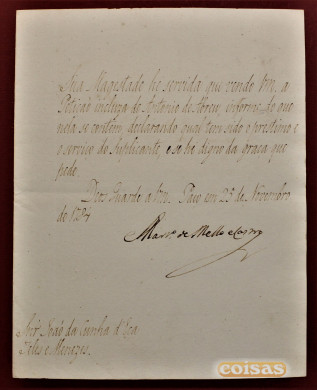 Sua Magestade he servida que vendo Vm. a
Petição incluza de Antonio de Abreu, informe do que
nela se contêm, declarando qual tem sido o prestimo e
o serviço do Suplicante, e se ha digno da graça que
pede.
Deos Guarde a Vm. Paço em 25 de Novembro
de 1784
Mart.º de Mello e Castro
Snr. João da Cunha d'Eça
Teles e Menezes.
coisas